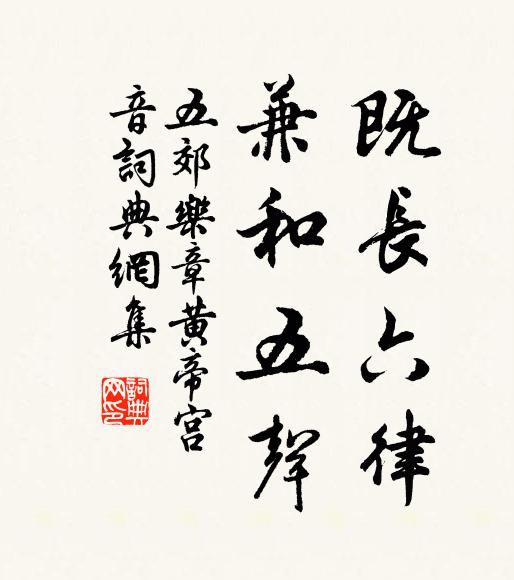 既長六律
兼和五聲
五郊樂章黃帝宮
音詞典網集
詞典
网印